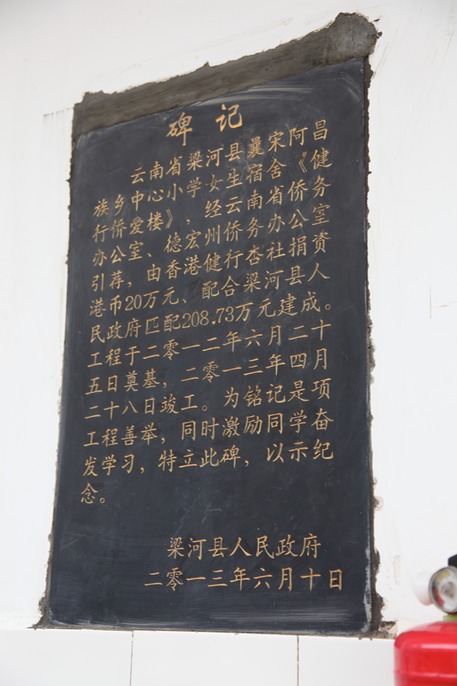 碑 记
云南省梁河县曩宋阿昌
族乡中心小学女生宿舍《健
行侨爱楼》，经云南省侨务
办公室、德宏州侨务办公室
引荐，由香港健行杏社捐资
港币20万元、配合梁河县人
民政府匹配208.73万元建成。
工程于二零一二年六月二十
五日奠基，二零一三年四月
二十八日竣工。为铭记是项
工程善举，同时激励同学奋
发学习，特立此碑，以示纪
念。
梁河县人民政府
二零一三年六月十日